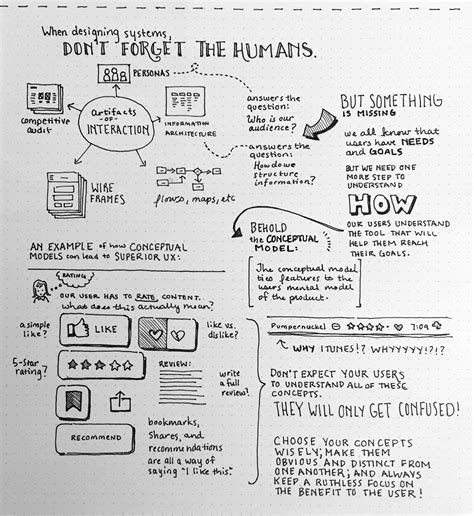 When designing systems,
DON'T FORGET THE HUMANS.
PERSONAS
competitive
audit
artifacts
OF
INTERACTION
INFORMATION
ARCHITECTURE
WIRE
FRAMES
flows, maps, etc
answers the
question:
Who is our
audience?
answers the
question:
How do we
structure
information?
BUT SOMETHING
IS MISSING
we all know that
users have NEEDS
and GOALS
BUT WE NEED ONE
MORE STEP TO
UNDERSTAND
HOW
OUR USERS UNDERSTAND
THE TOOL THAT WILL
HELP THEM REACH
THEIR GOALS.
BEHOLD
the CONCEPTUAL
MODEL:
The conceptual model
ties features to the
users mental model
of the product.
AN EXAMPLE of how CONCEPTUAL
MODELS can lead to SUPERIOR UX:
RATING
OUR USER HAS TO RATE CONTENT.
what does this actually mean?
a simple
like?
LIKE
like vs.
dislike?
5-star
rating?
REVIEW:
write
a full
review?
RECOMMEND
bookmarks,
shares, and
recommendations
are all a way of
saying "I like this."
Pumpernuckel
7:09
WHY ITUNES!? WHYYYYY!?!?
DON'T EXPECT YOUR USERS
TO UNDERSTAND ALL OF THESE
CONCEPTS.
THEY WILL ONLY GET CONFUSED!
CHOOSE YOUR CONCEPTS
WISELY; MAKE THEM
OBVIOUS AND DISTINCT FROM
ONE ANOTHER; AND ALWAYS
KEEP A RUTHLESS FOCUS ON
THE BENEFIT TO THE USER!